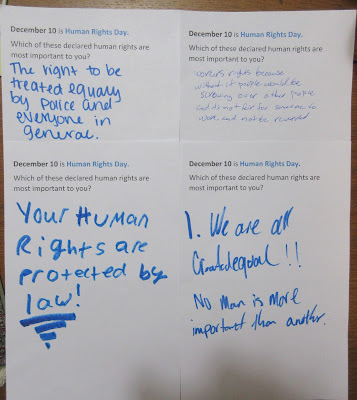 December 10 is Human Rights Day.
Which of these declared human rights are
most important to you?
The right to be
treated equaly
by police and
everyone in
general.
December 10 is Human Rights Day.
Which of these declared human rights are
most important to you?
workers rights because
without it people would be
screwing over other people
and its not fair for someone to
work and not be rewarded
December 10 is Human Rights Day.
Which of these declared human rights are
most important to you?
Your Human
Rights are
protected by
law!
December 10 is Human Rights Day.
Which of these declared human rights are
most important to you?
1. We are all
Created equal!!
No man is more
important than another.